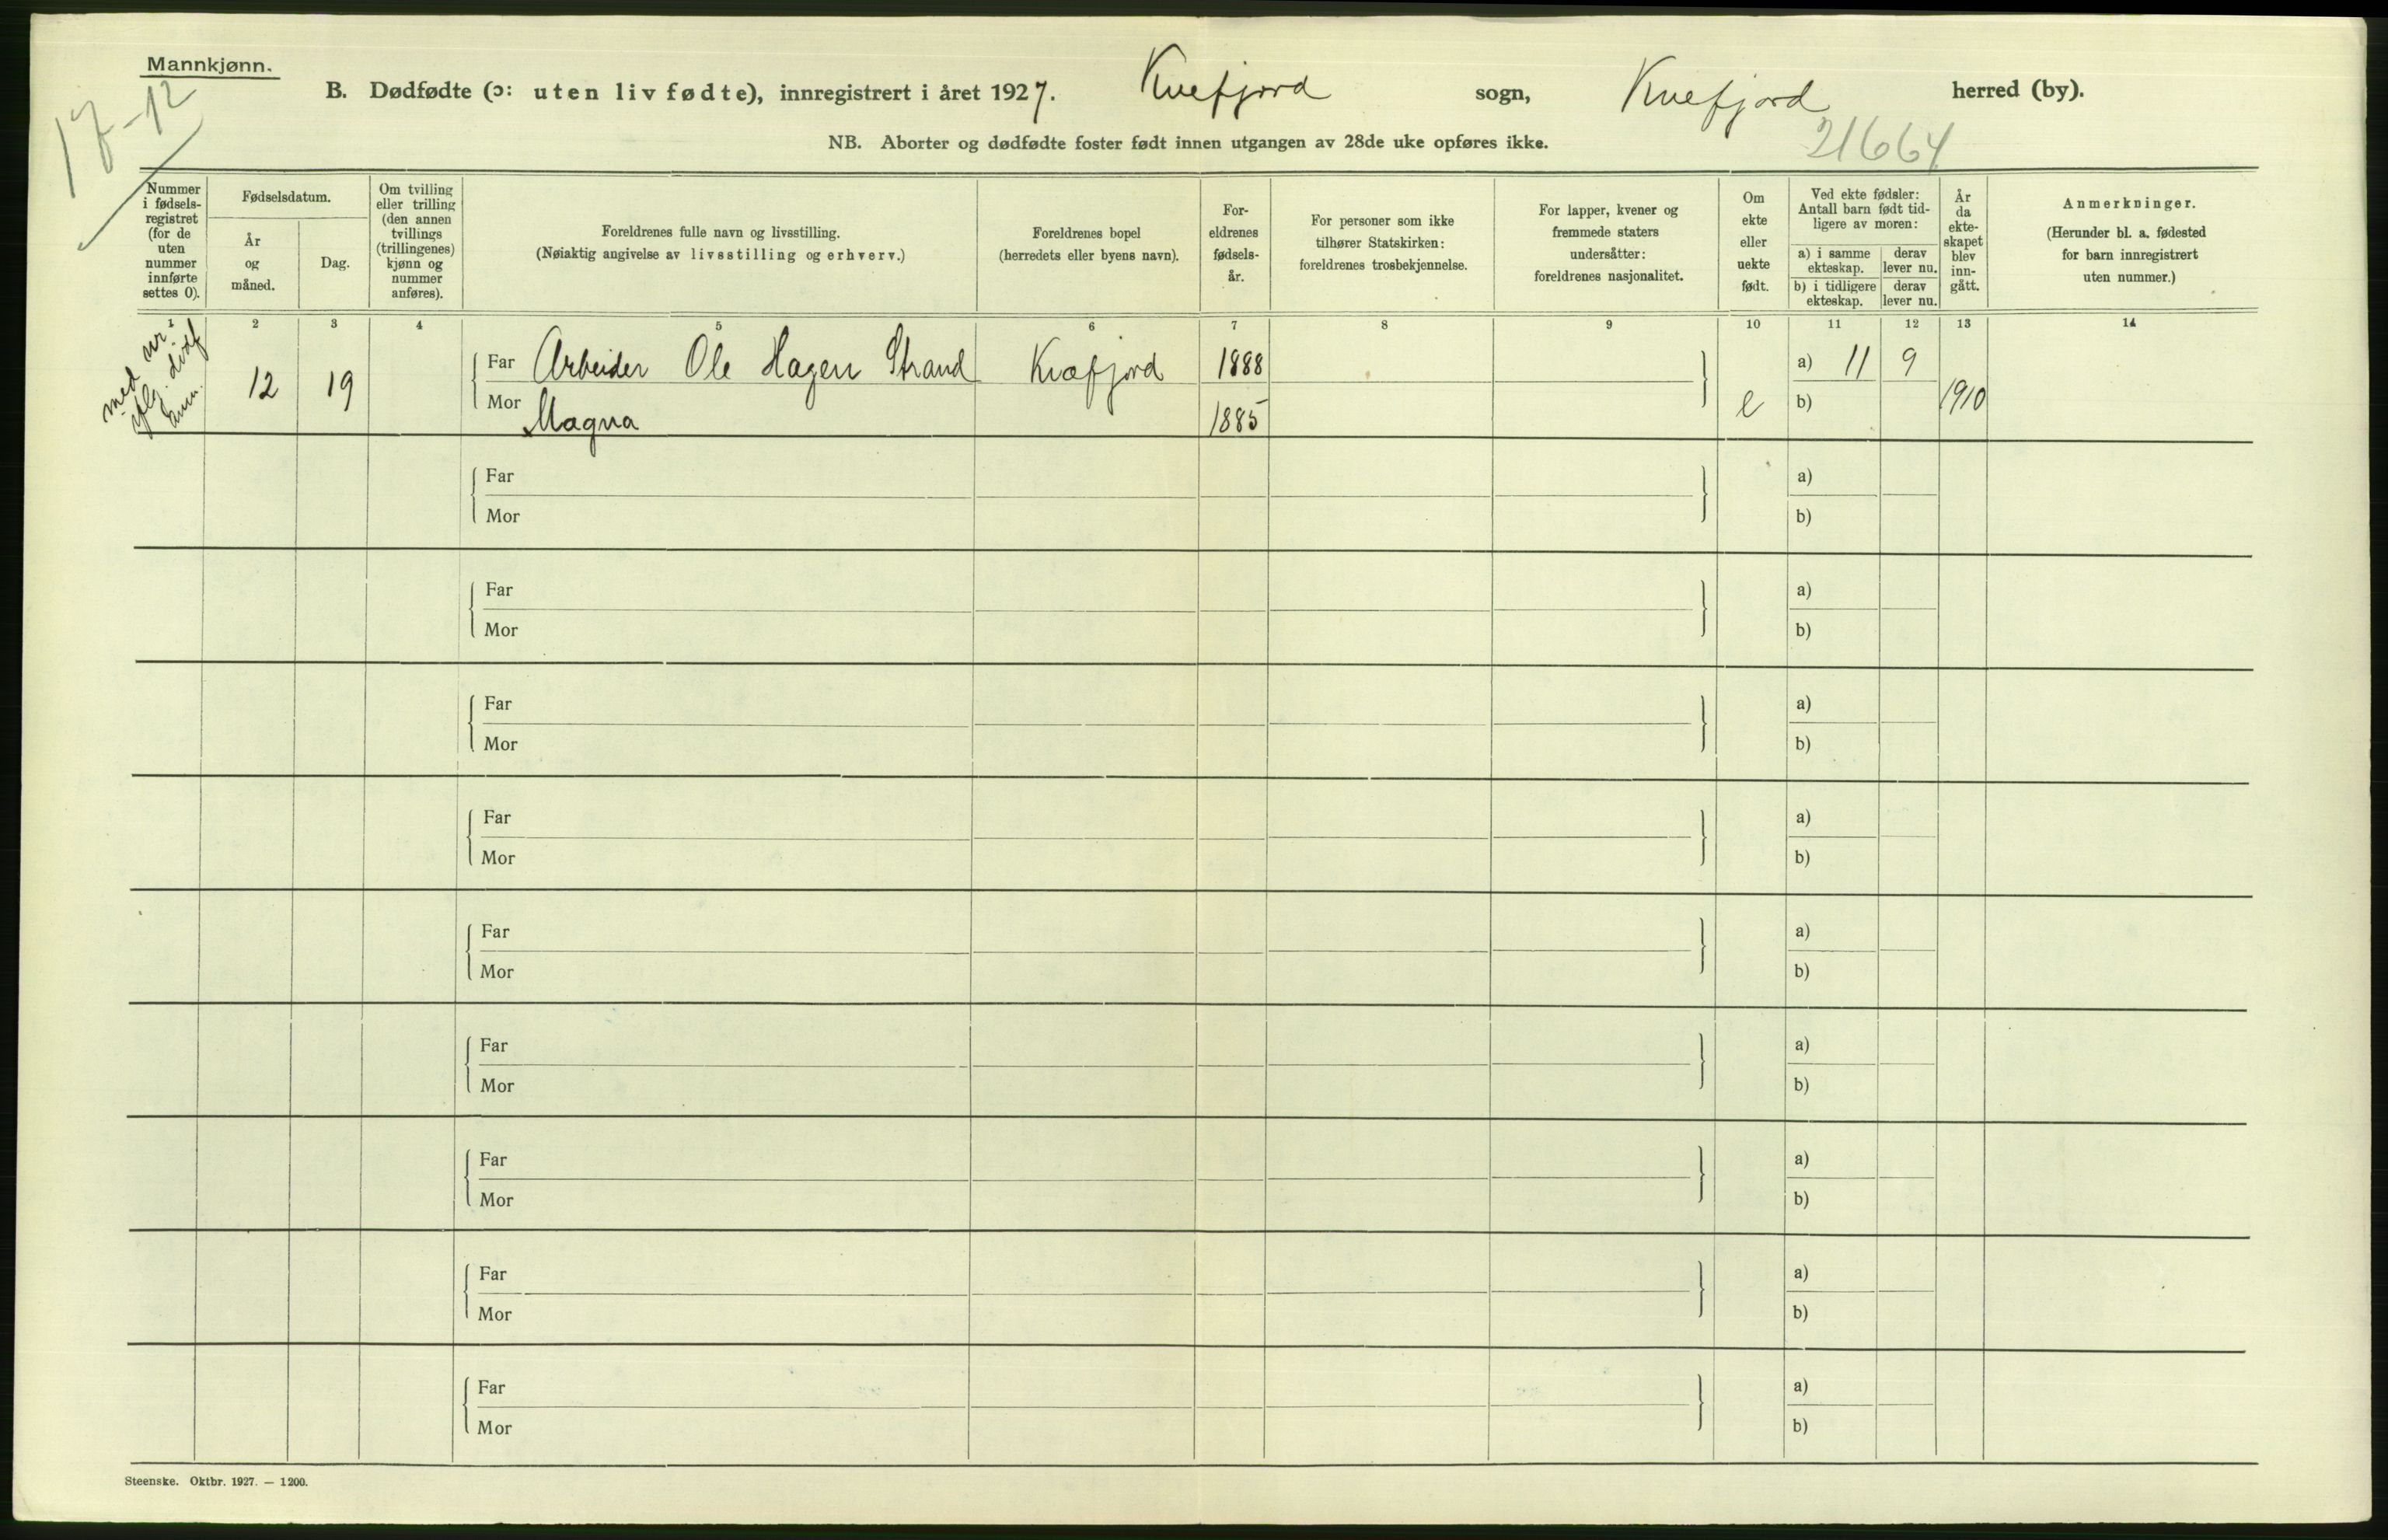 Mannkjønn.
17-12
B. Dødfødte (ɔ: uten liv fødte), innregistrert i året 1927. Kvefjord sogn, Kvefjord herred (by).
NB. Aborter og dødfødte foster født innen utgangen av 28de uke opføres ikke.
21664
Nummer i fødsels-registret (for de uten nummer innførte settes 0).
Fødselsdatum.
År og måned.
Dag.
Om tvilling eller trilling (den annen tvillings (trillingenes) kjønn og nummer anføres).
Foreldrenes fulle navn og livsstilling.
(Nøiaktig angivelse av livsstilling og erhverv.)
Foreldrenes bopel
(herredets eller byens navn).
For-eldrenes fødsels-år.
For personer som ikke tilhører Statskirken: foreldrenes trosbekjennelse.
For lapper, kvener og fremmede staters undersåtter: foreldrenes nasjonalitet.
Om ekte eller uekte født.
Ved ekte fødsler: Antall barn født tid-ligere av moren:
a) i samme ekteskap.
derav lever nu.
b) i tidligere ekteskap.
derav lever nu.
År da ekte-skapet blev inn-gått.
Anmerkninger.
(Herunder bl. a. fødested for barn innregistrert uten nummer.)
1 2 3 4 5 6 7 8 9 10 11 12 13 14
med nr.
12 19
Far Arbeider Ole Hagen Strand Kvæfjord 1888 a) 11 9
Mor Magna 1885 e b) 1910
Far a)
Mor b)
Far a)
Mor b)
Far a)
Mor b)
Far a)
Mor b)
Far a)
Mor b)
Far a)
Mor b)
Far a)
Mor b)
Far a)
Mor b)
Far a)
Mor b)
Steenske. Oktbr. 1927. — 1200.